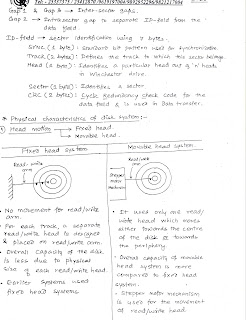 Gap 1 & Gap 3 → Inter-sector gaps.
Gap 2 → Intrasector gap to separate ID-field from the
data field
ID-field → Sector identification using 4 bytes.
Track (2 byte): Defines the track to which the sector belongs.
Head (1 byte): Identifies a particular head out of 'n' heads
in Winchester drive.
Sector (1 byte): Identifies a sector
CRC (2 byte): Cyclic Redundancy code for the
data field & is used in Data transfer.
* Physical characteristics of disk system:-
① Head motion → Fixed head.
→ Movable head.
Fixed head system
Movable head system
Read-write
arm
Read/write
arm
Stepper
motor
mechanism
• No movement for read/write
arm.
• Per each track, a separate
read/write head is designed
& placed on read/write arm.
• Overall capacity of the disk
is less due to physical
size of each read/write head.
• Earlier systems used
fixed head systems
• It uses only one read/
write head which moves
either towards the centre
of the disk or towards
the periphery.
• Overall capacity of movable
head system is more
compared to fixed head
system.
• Stepper motor mechanism
is used for the movement
of read/write head.